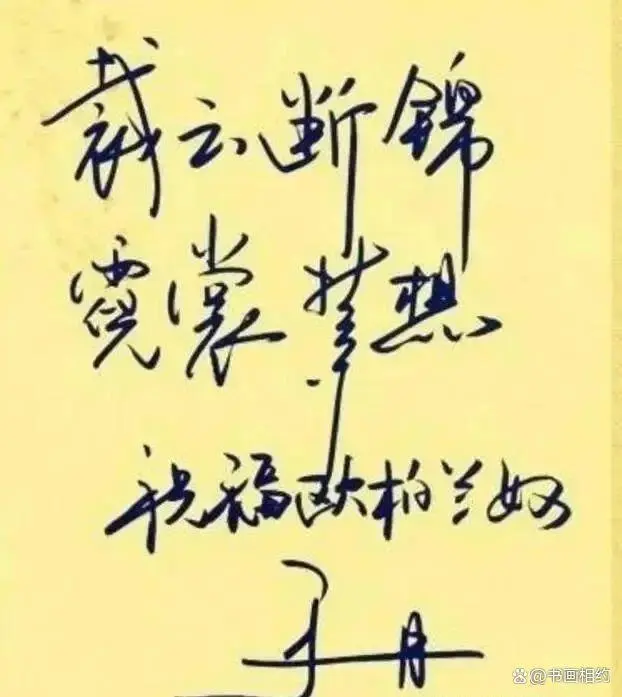 裁云断锦
霓裳梦想
祝福欧柏兰奴
于丹
书画相约